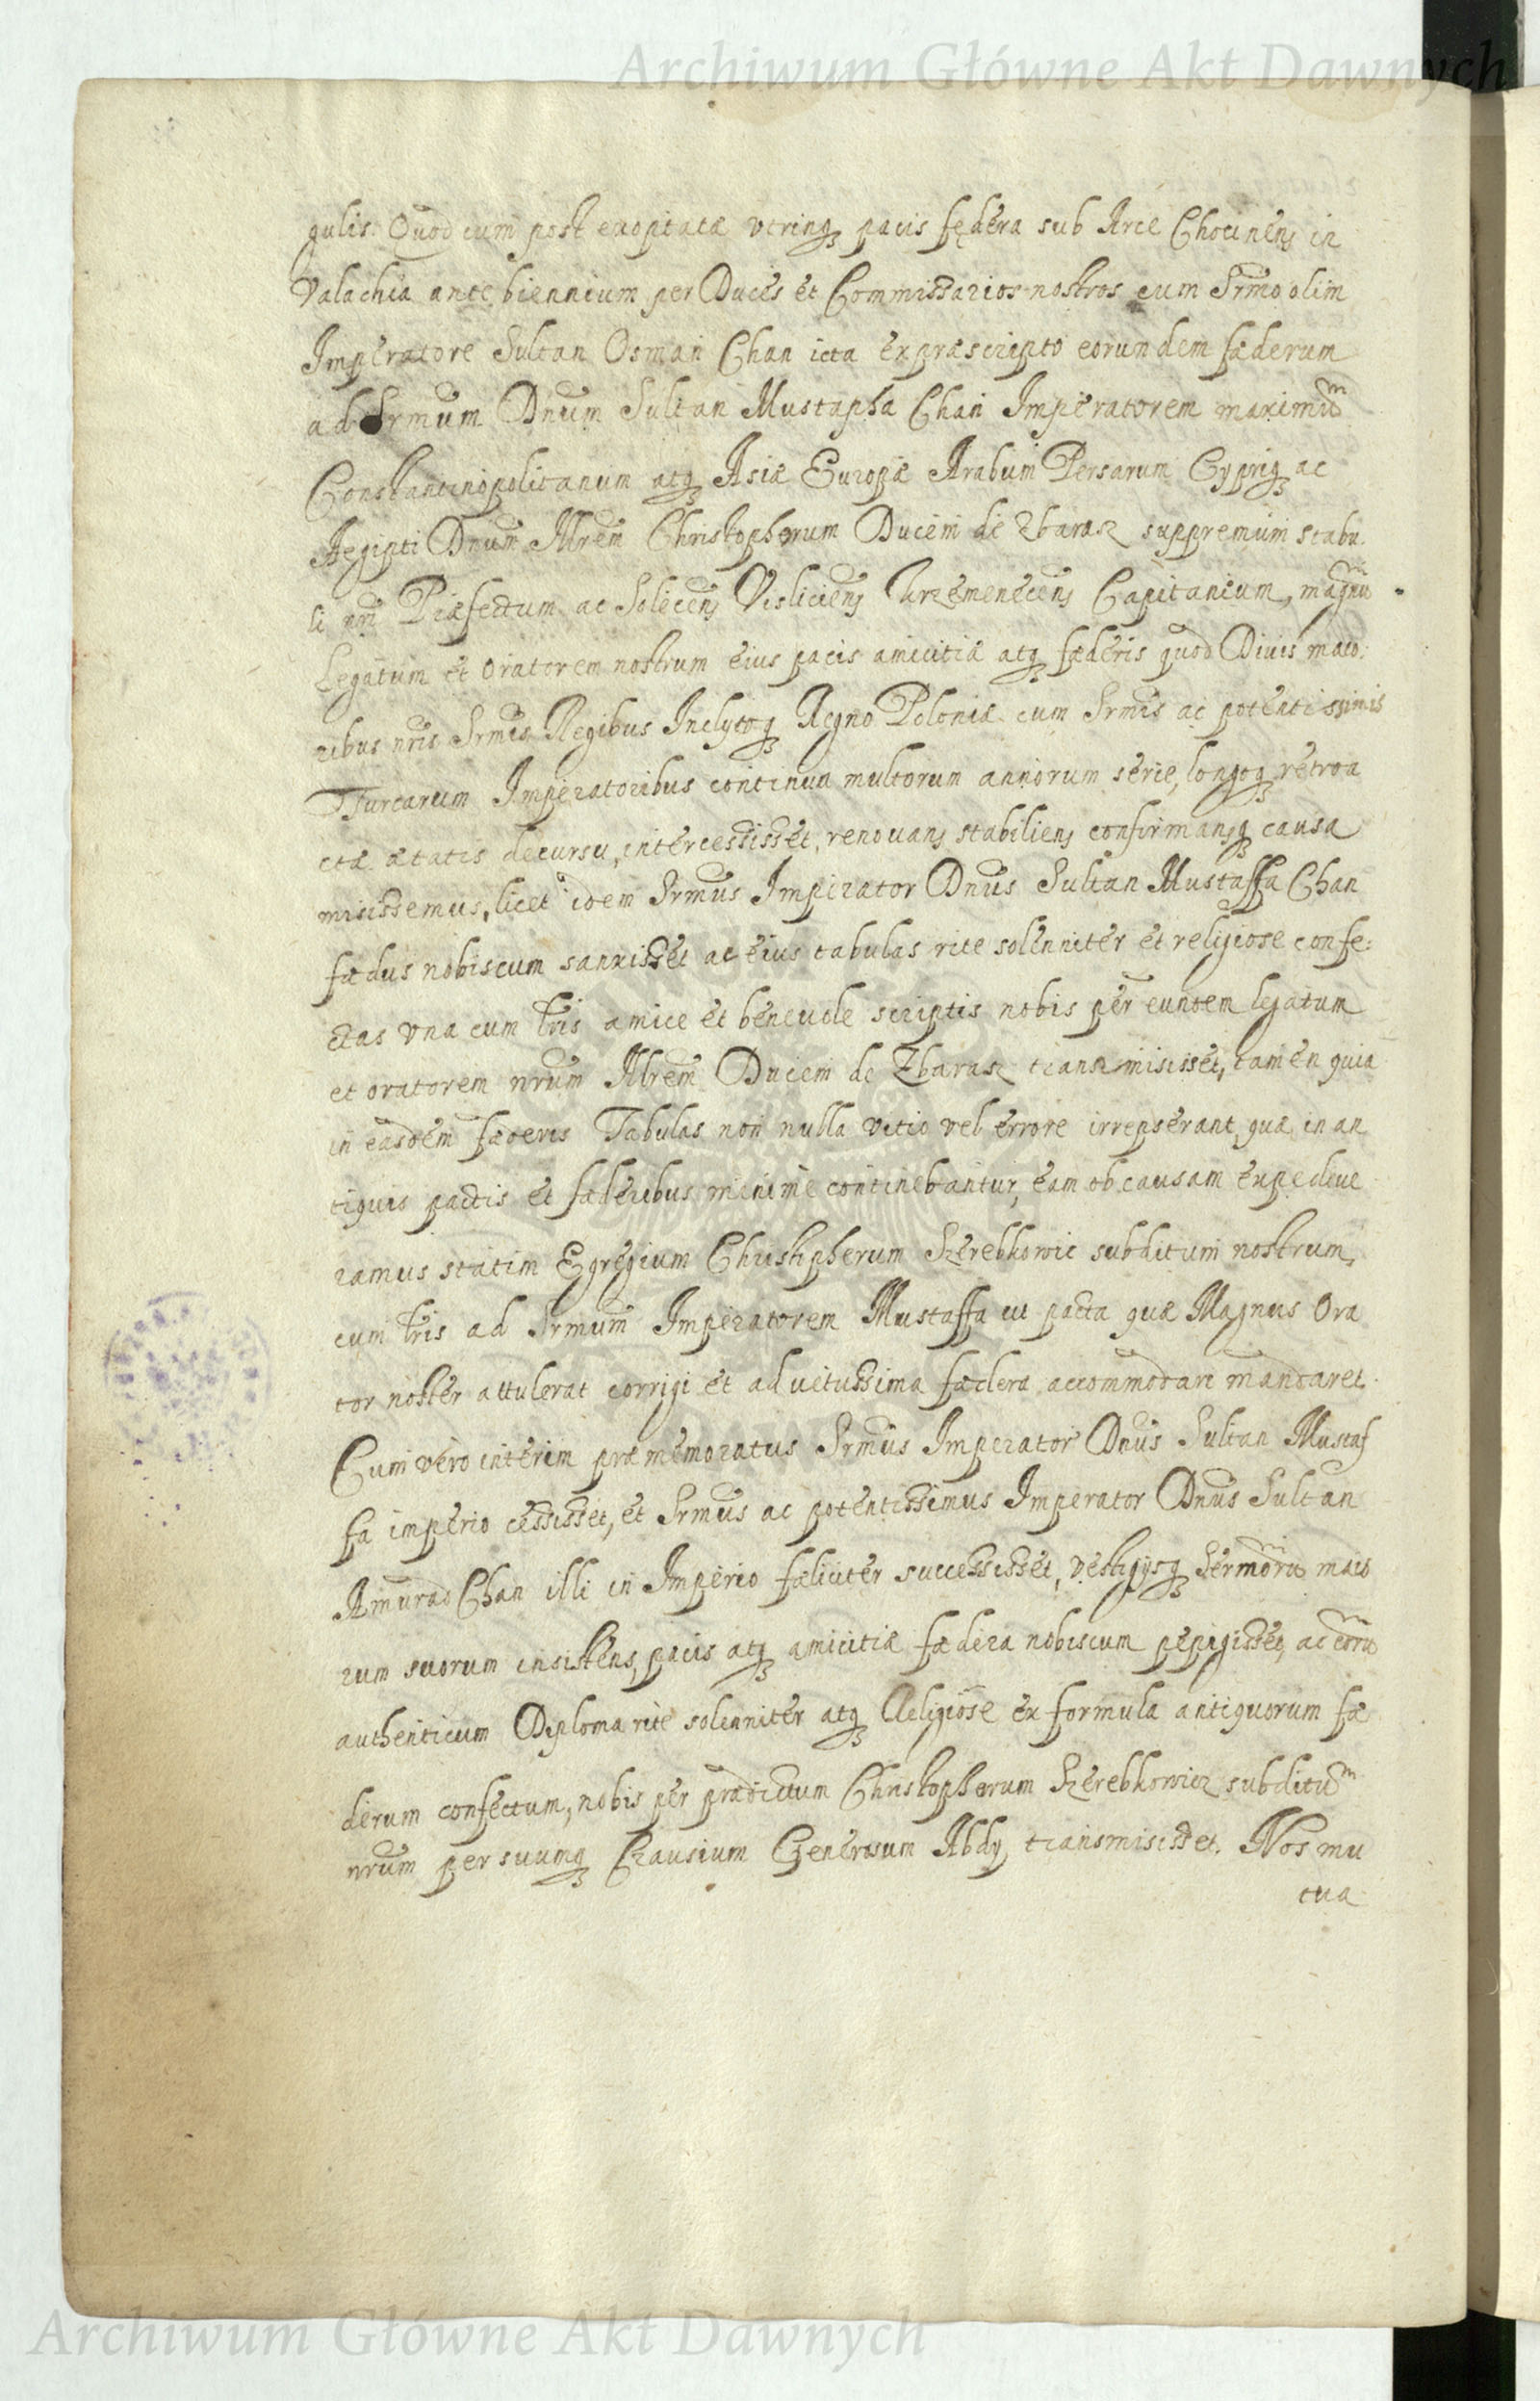 Archiwum Główne Akt Dawnych
gulis. Quod cum post exoptatæ vtrinq₃ pacis fędera sub Arce Chocinens in
Valachia ante biennium per Duces et Commissarios nostros cum Srmo olim
Imperatore Sultan Osman Chan icta ex præscripto eorundem fæderum
ad Srmum Dnum Sultan Mustapha Chan Imperatorem maximum
Constantinopolitanum atq₃ Asiæ Europæ Arabum Persarum Cypriq₃ ac
Aegipti Dnum Illrem Christophorum Ducem de Zbaraz suppremum stabu
li nri Præfectum ac Solecens Visliciens Krzemenecens Capitaneum, magnum
Legatum et Oratorem nostrum eius pacis amicitiæ atq₃ fæderis quod Diuis maio:
ribus nris Srmis Regibus Inclytoq₃ Regno Poloniæ cum Srmis ac potentissimis
Turcarum Imperatoribus continua multorum annorum serie, longoq₃ retroa
ctæ ætatis decursu, intercessisset, renouans stabiliens confirmansq₃ causa
misissemus, licet idem Srmus Imperator Dnus Sultan Mustaffa Chan
fædus nobiscum sanxisset ac eius tabulas rite solenniter et religiose confe:
ctas vna cum lris amice et beneuole scriptis nobis per euntem legatum
et oratorem nrum Illrem Ducem de Zbaraz transmisisset, tamen quia
in easdem fæderis Tabulas non nulla vitio vel errore irrepserant, quæ in an
tiquis pactis et fæderibus minime continebantur, eam ob causam expediue
ramus statim Egregium Christopherum Szerebkowic subditum nostrum,
cum lris ad Srmum Imperatorem Mustaffa ut pacta quæ Magnus Ora
tor noster attulerat corrigi et ad vetussima fædera accommodari mandaret.
Cum vero interim præmemoratus Srmus Imperator Dnus Sultan Mustaf
fa imperio cessisset, et Srmus ac potentissimus Imperator Dnus Sultan
Amurad Chan illi in Imperio fæliciter successisset, vestigijsq₃ Sermorum maio
rum suorum insistens, pacis atq₃ amicitiæ fædera nobiscum pepigisset, ac eorum
authenticum Diploma rite solenniter atq₃ Religiose ex formula antiquorum fæ
derum confectum, nobis per prædictum Christophorum Szerebkowicz subditum
nrum per suumq₃ Czausium Generosum Abdy, transmisisset. Nos mu
tua
Archiwum Główne Akt Dawnych